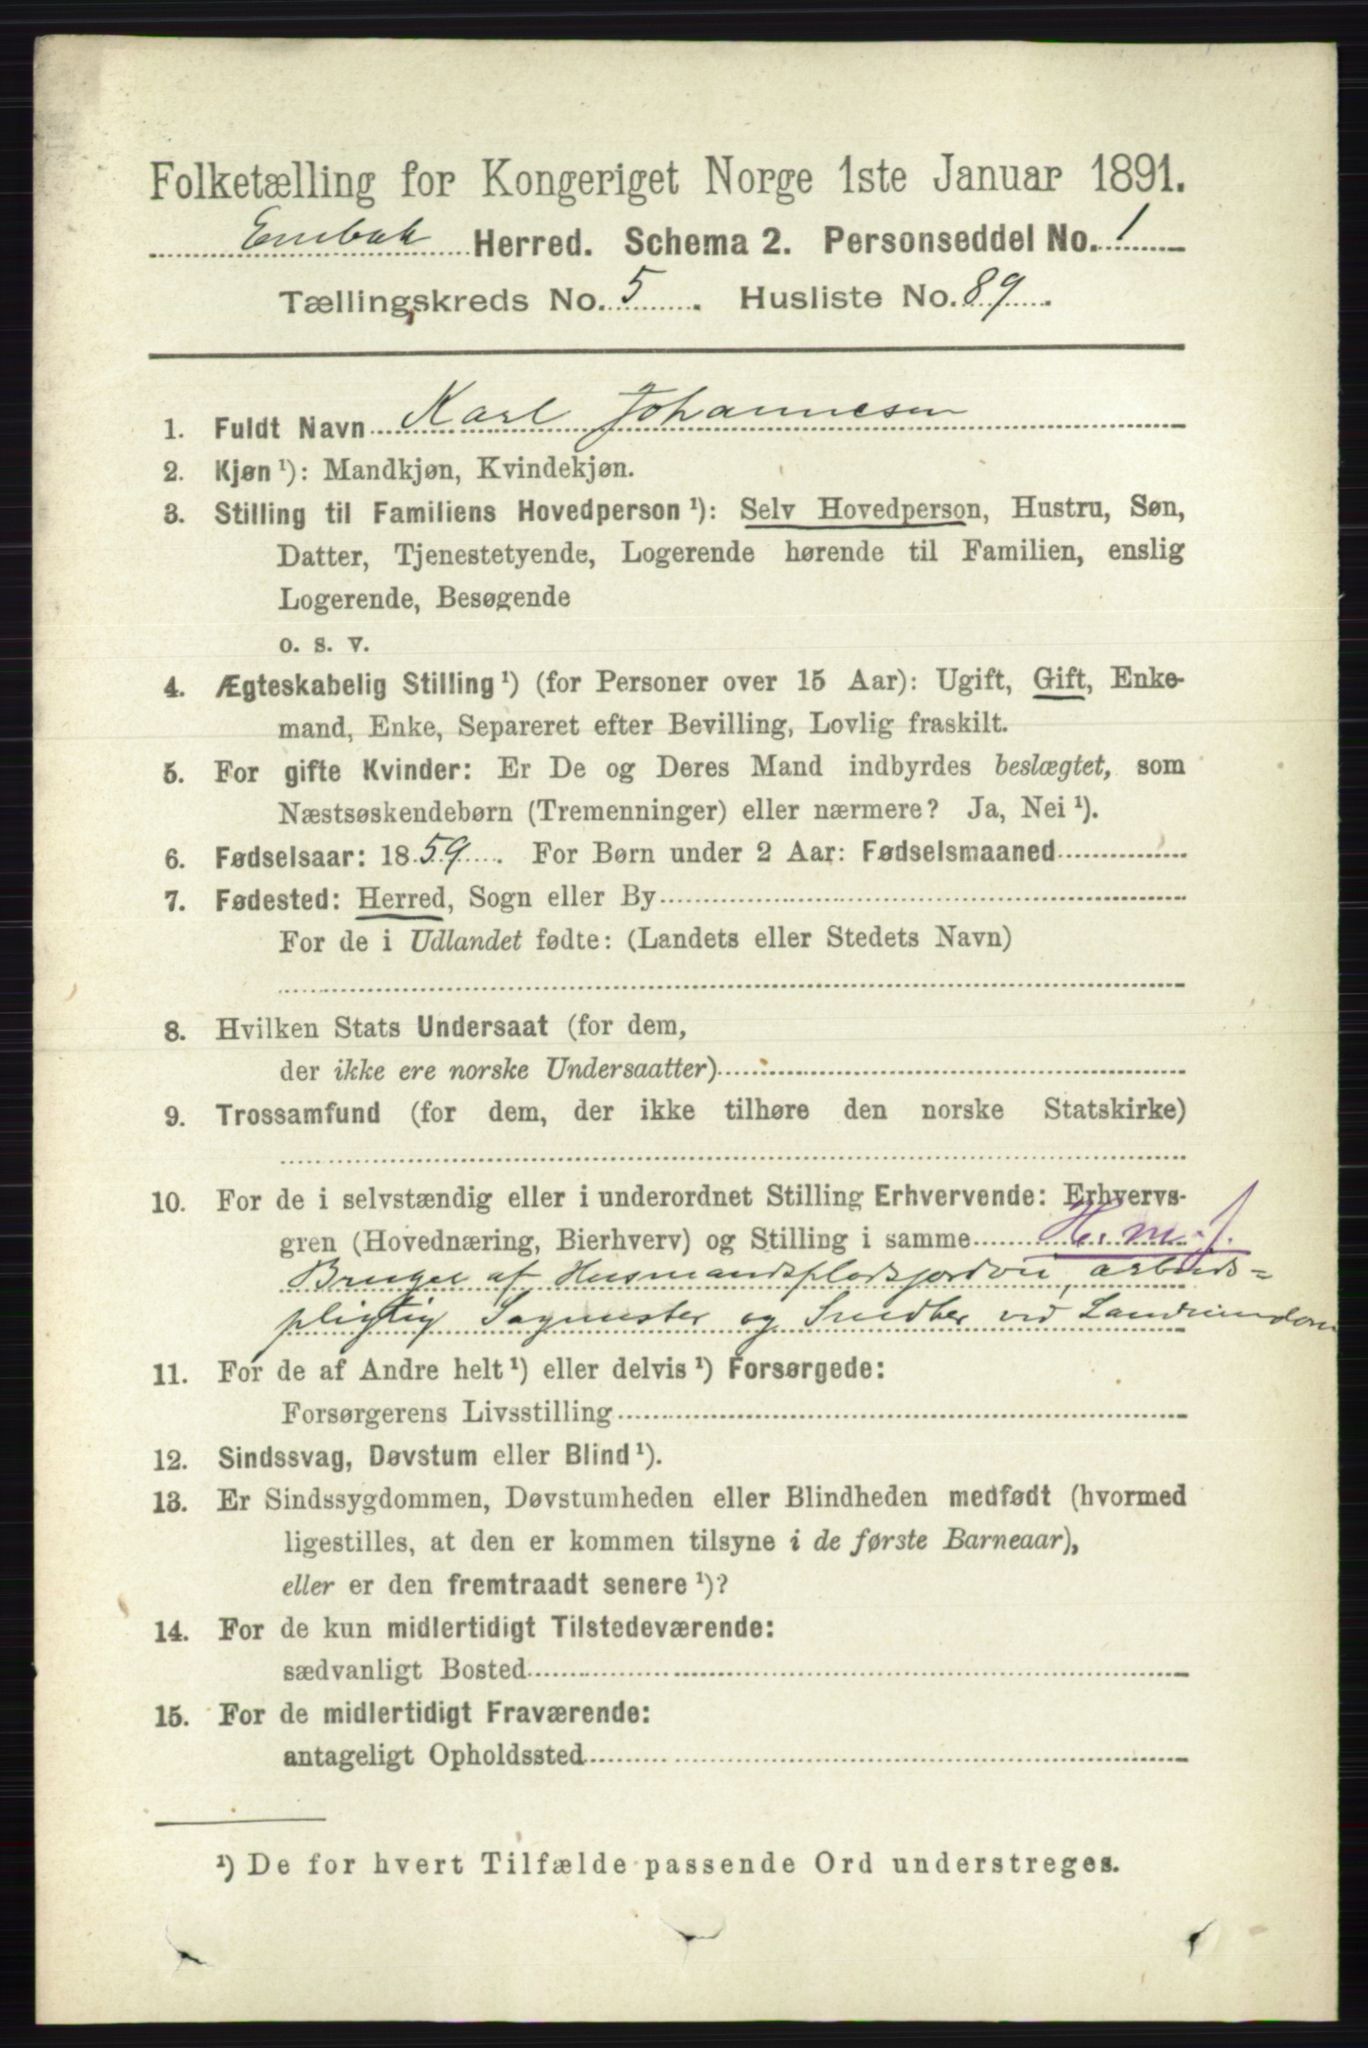 Folketælling for Kongeriget Norge 1ste Januar 1891.
Enebak Herred. Schema 2. Personseddel No. 1
Tællingskreds No. 5. Husliste No. 89.
1. Fuldt Navn Karl Johannesen
2. Kjøn ¹): Mandkjøn, Kvindekjøn.
3. Stilling til Familiens Hovedperson ¹): Selv Hovedperson, Hustru, Søn,
Datter, Tjenestetyende, Logerende hørende til Familien, enslig
Logerende, Besøgende
o. s. v.
4. Ægteskabelig Stilling ¹) (for Personer over 15 Aar): Ugift, Gift, Enke-
mand, Enke, Separeret efter Bevilling, Lovlig fraskilt.
5. For gifte Kvinder: Er De og Deres Mand indbyrdes beslægtet, som
Næstsøskendebørn (Tremenninger) eller nærmere? Ja, Nei ¹).
6. Fødselsaar: 1859. For Børn under 2 Aar: Fødselsmaaned
7. Fødested: Herred, Sogn eller By
For de i Udlandet fødte: (Landets eller Stedets Navn)
8. Hvilken Stats Undersaat (for dem,
der ikke ere norske Undersaatter)
9. Trossamfund (for dem, der ikke tilhøre den norske Statskirke)
10. For de i selvstændig eller i underordnet Stilling Erhvervende: Erhvervs-
gren (Hovednæring, Bierhverv) og Stilling i samme H. m. j.
Bruger af Husmandsplads, arbeids=
pligtig Sagmester og Snedker ved
11. For de af Andre helt ¹) eller delvis ¹) Forsørgede:
Forsørgerens Livsstilling
12. Sindssvag, Døvstum eller Blind ¹).
13. Er Sindssygdommen, Døvstumheden eller Blindheden medfødt (hvormed
ligestilles, at den er kommen tilsyne i de første Barneaar),
eller er den fremtraadt senere ¹)?
14. For de kun midlertidigt Tilstedeværende:
sædvanligt Bosted
15. For de midlertidigt Fraværende:
antageligt Opholdssted
¹) De for hvert Tilfælde passende Ord understreges.